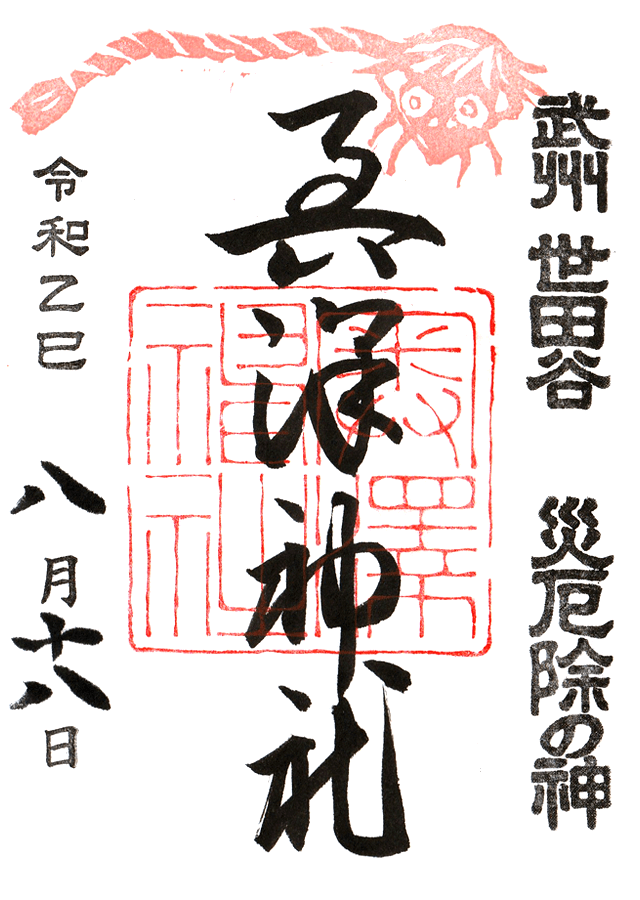 武州 世田谷 災厄除の神
奥澤神社
奥澤神社
令和乙巳
八月十八日